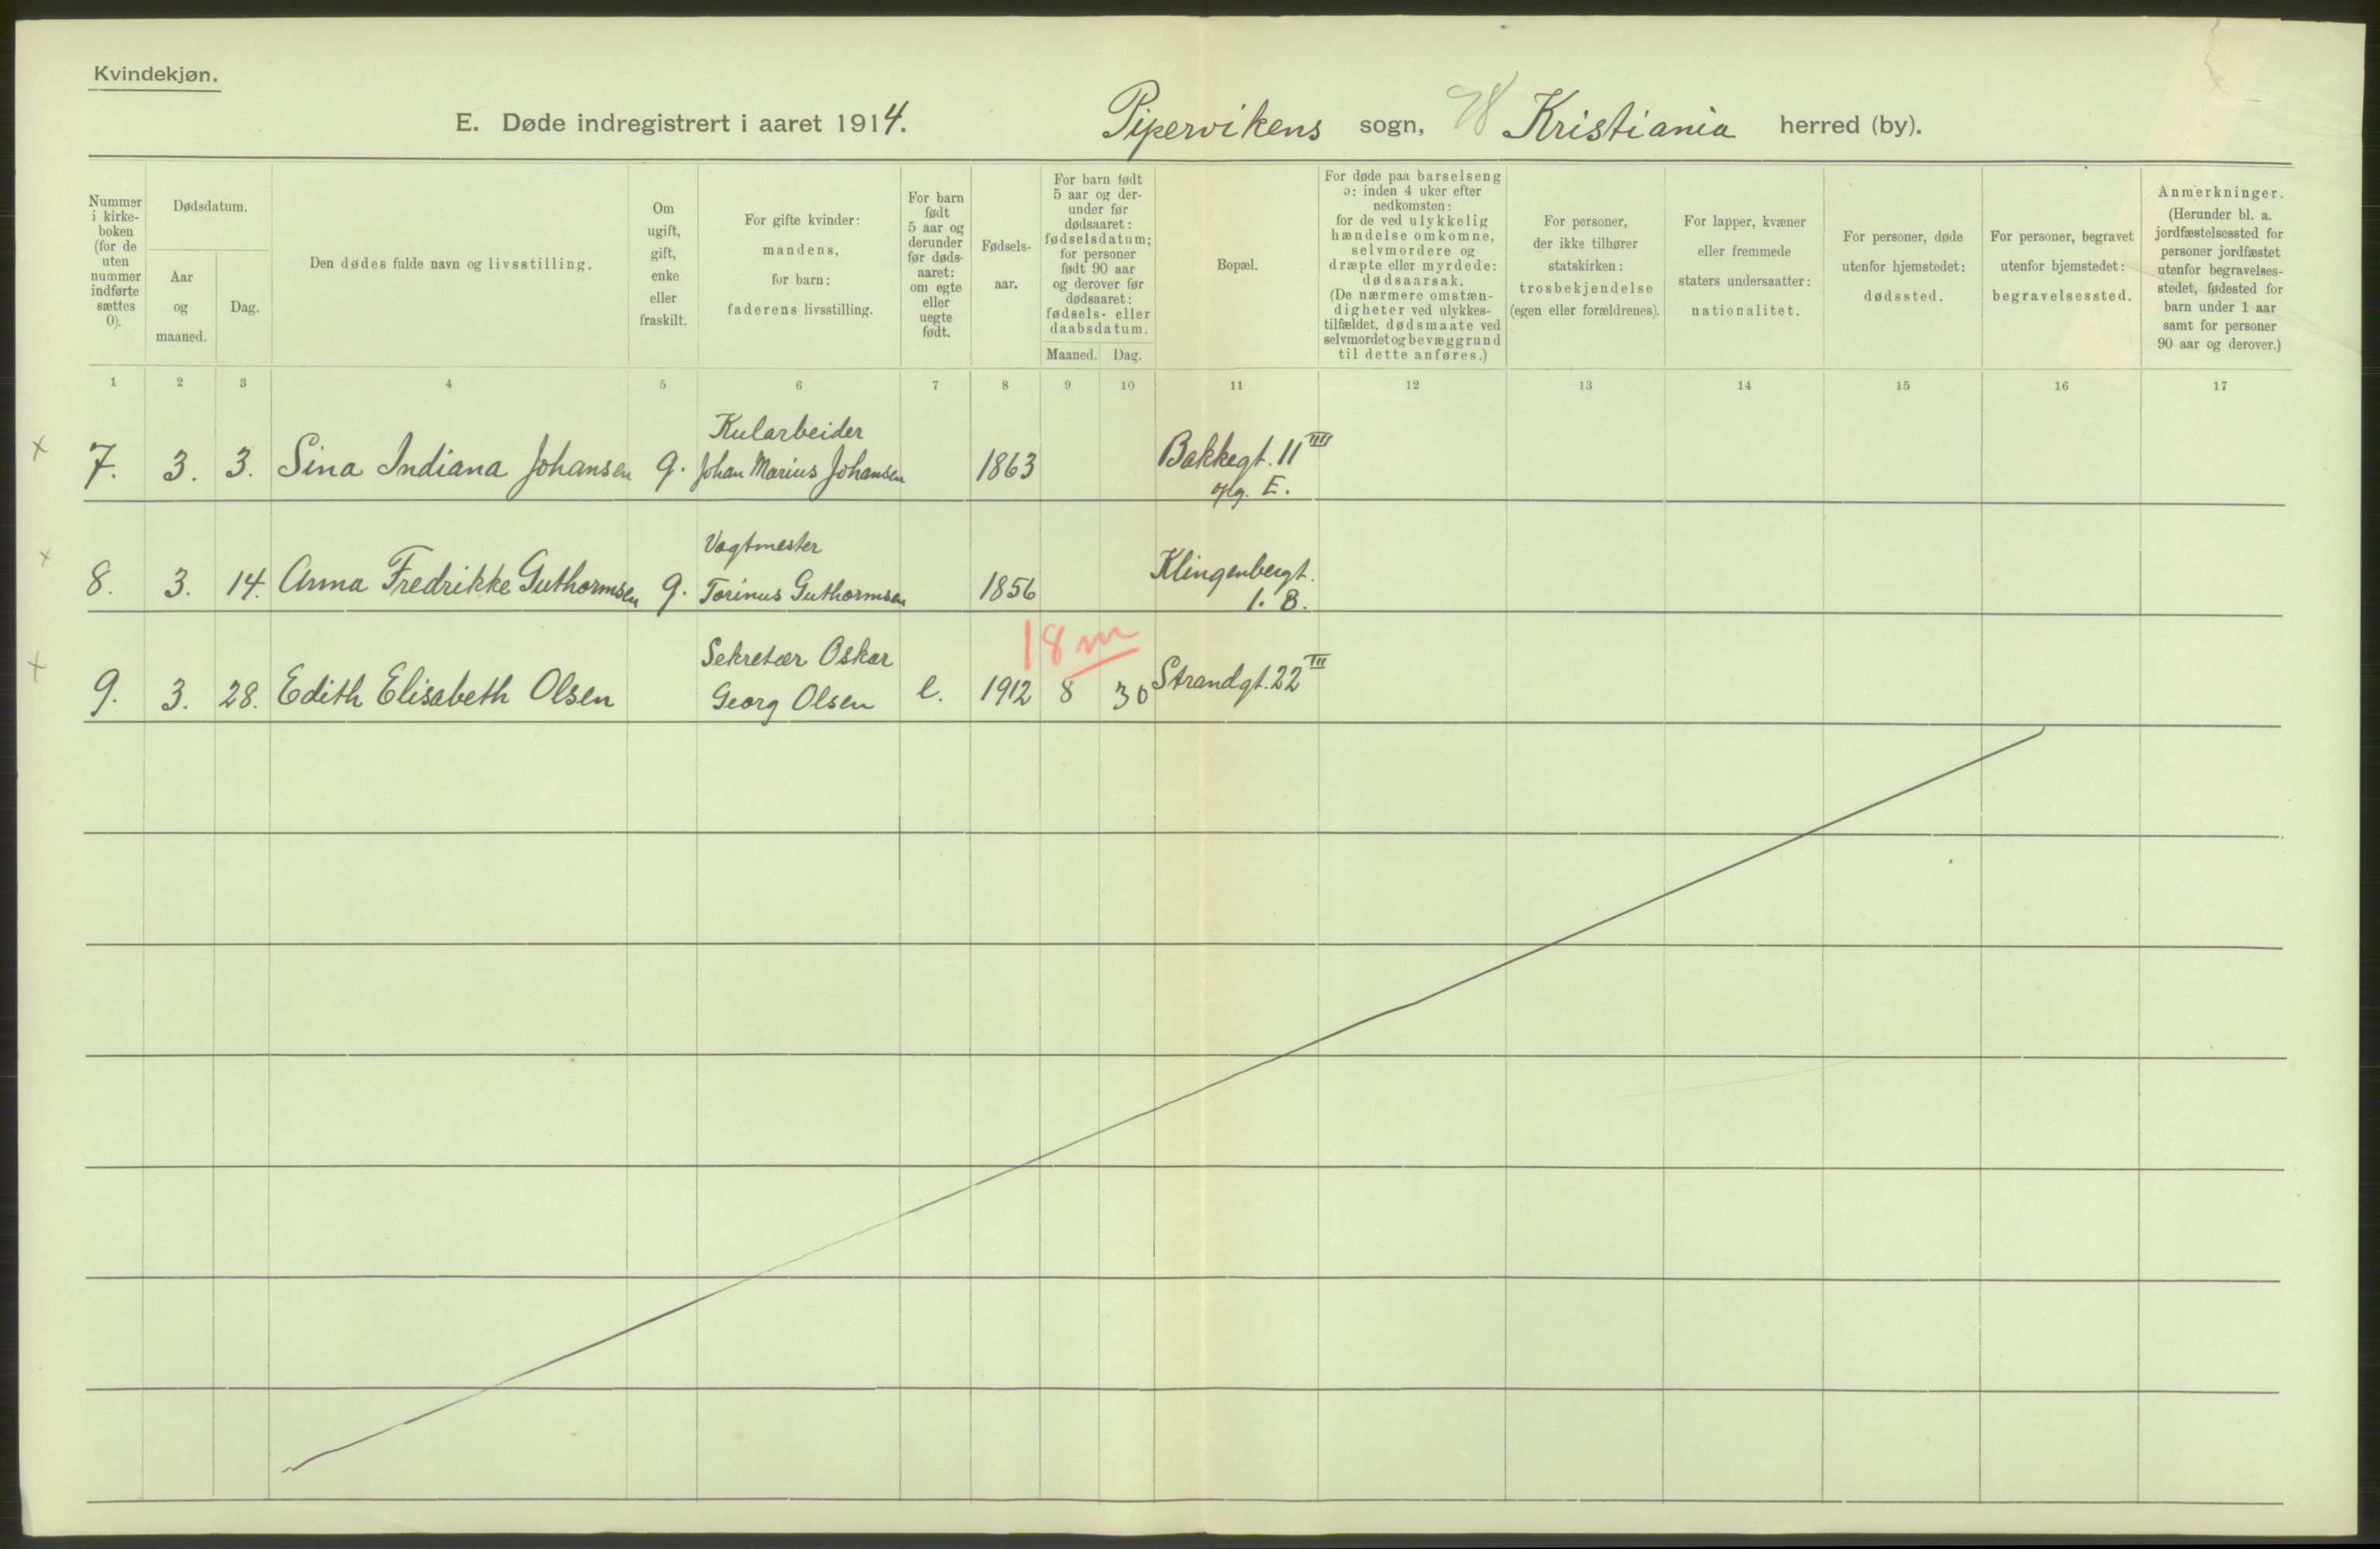 Kvindekjøn.
E. Døde indregistrert i aaret 1914.
Pipervikens sogn, Kristiania herred (by).
Nummer
i kirke-
boken
(for de
uten
nummer
indførte
sættes
0).
Dødsdatum.
Aar
og
maaned.
Dag.
Den dødes fulde navn og livsstilling.
Om
ugift,
gift,
enke
eller
fraskilt.
For gifte kvinder:
mandens,
for barn:
faderens livsstilling.
For barn
født
5 aar og
derunder
før døds-
aaret:
om egte
eller
uegte
født.
Fødsels-
aar.
For barn født
5 aar og der-
under før
dødsaaret:
fødselsdatum;
for personer
født 90 aar
og derover før
dødsaaret:
fødsels- eller
daabsdatum.
Maaned. Dag.
Bopæl.
For døde paa barselseng
ɔ: inden 4 uker efter
nedkomsten:
for de ved ulykkelig
hændelse omkomne,
selvmordere og
dræpte eller myrdede:
dødsaarsak.
(De nærmere omstæn-
digheter ved ulykkes-
tilfældet, dødsmaate ved
selvmordet og bevæggrund
til dette anføres.)
For personer,
der ikke tilhører
statskirken:
trosbekjendelse
(egen eller forældrenes).
For lapper, kvæner
eller fremmede
staters undersaatter:
nationalitet.
For personer, døde
utenfor hjemstedet:
dødssted.
For personer, begravet
utenfor bjemstedet:
begravelsessted.
Anmerkninger.
(Herunder bl. a.
jordfæstelsessted for
personer jordfæstet
utenfor begravelses-
stedet, fødested for
barn under 1 aar
samt for personer
90 aar og derover.)
1 2 3 4 5 6 7 8 9 10 11 12 13 14 15 16 17
Kularbeider
x 7. 3. 3. Sina Indiana Johansen g. Johan Marius Johansen 1863 Bakkegt. 11 III
opg. E.
Vagtmester
x 8. 3. 14. Anna Fredrikke Guthormsen g. Torinus Guthormsen 1856 Klingenbergt.
1. B.
18 m
Sekretær Oskar
x 9. 3. 28. Edith Elisabeth Olsen Georg Olsen e. 1912 8 30 Strandgt. 22 III